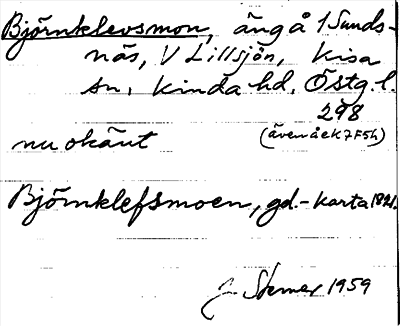 Björnklevsmon, äng å 1 Sunds-
näs, V Lillsjön, Kisa
sn, Kinda hd, Östg. l.
298
nu okänt (även åek 7F5h)
Björnklefsmoen, gd.-karta 1821.
J. Stemer 1959